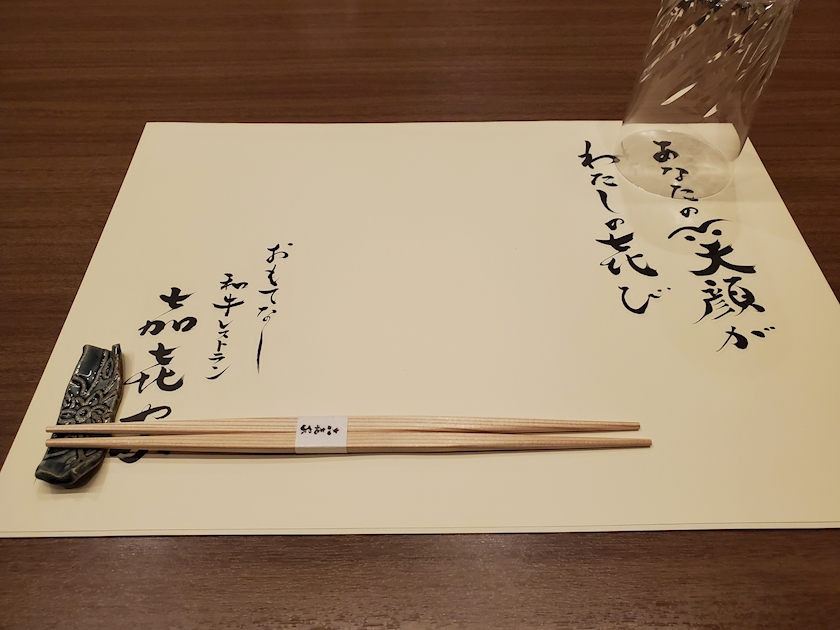 あなたの笑顔が
わたしの㐂び
おもてなし
和牛レストラン
嘉㐂